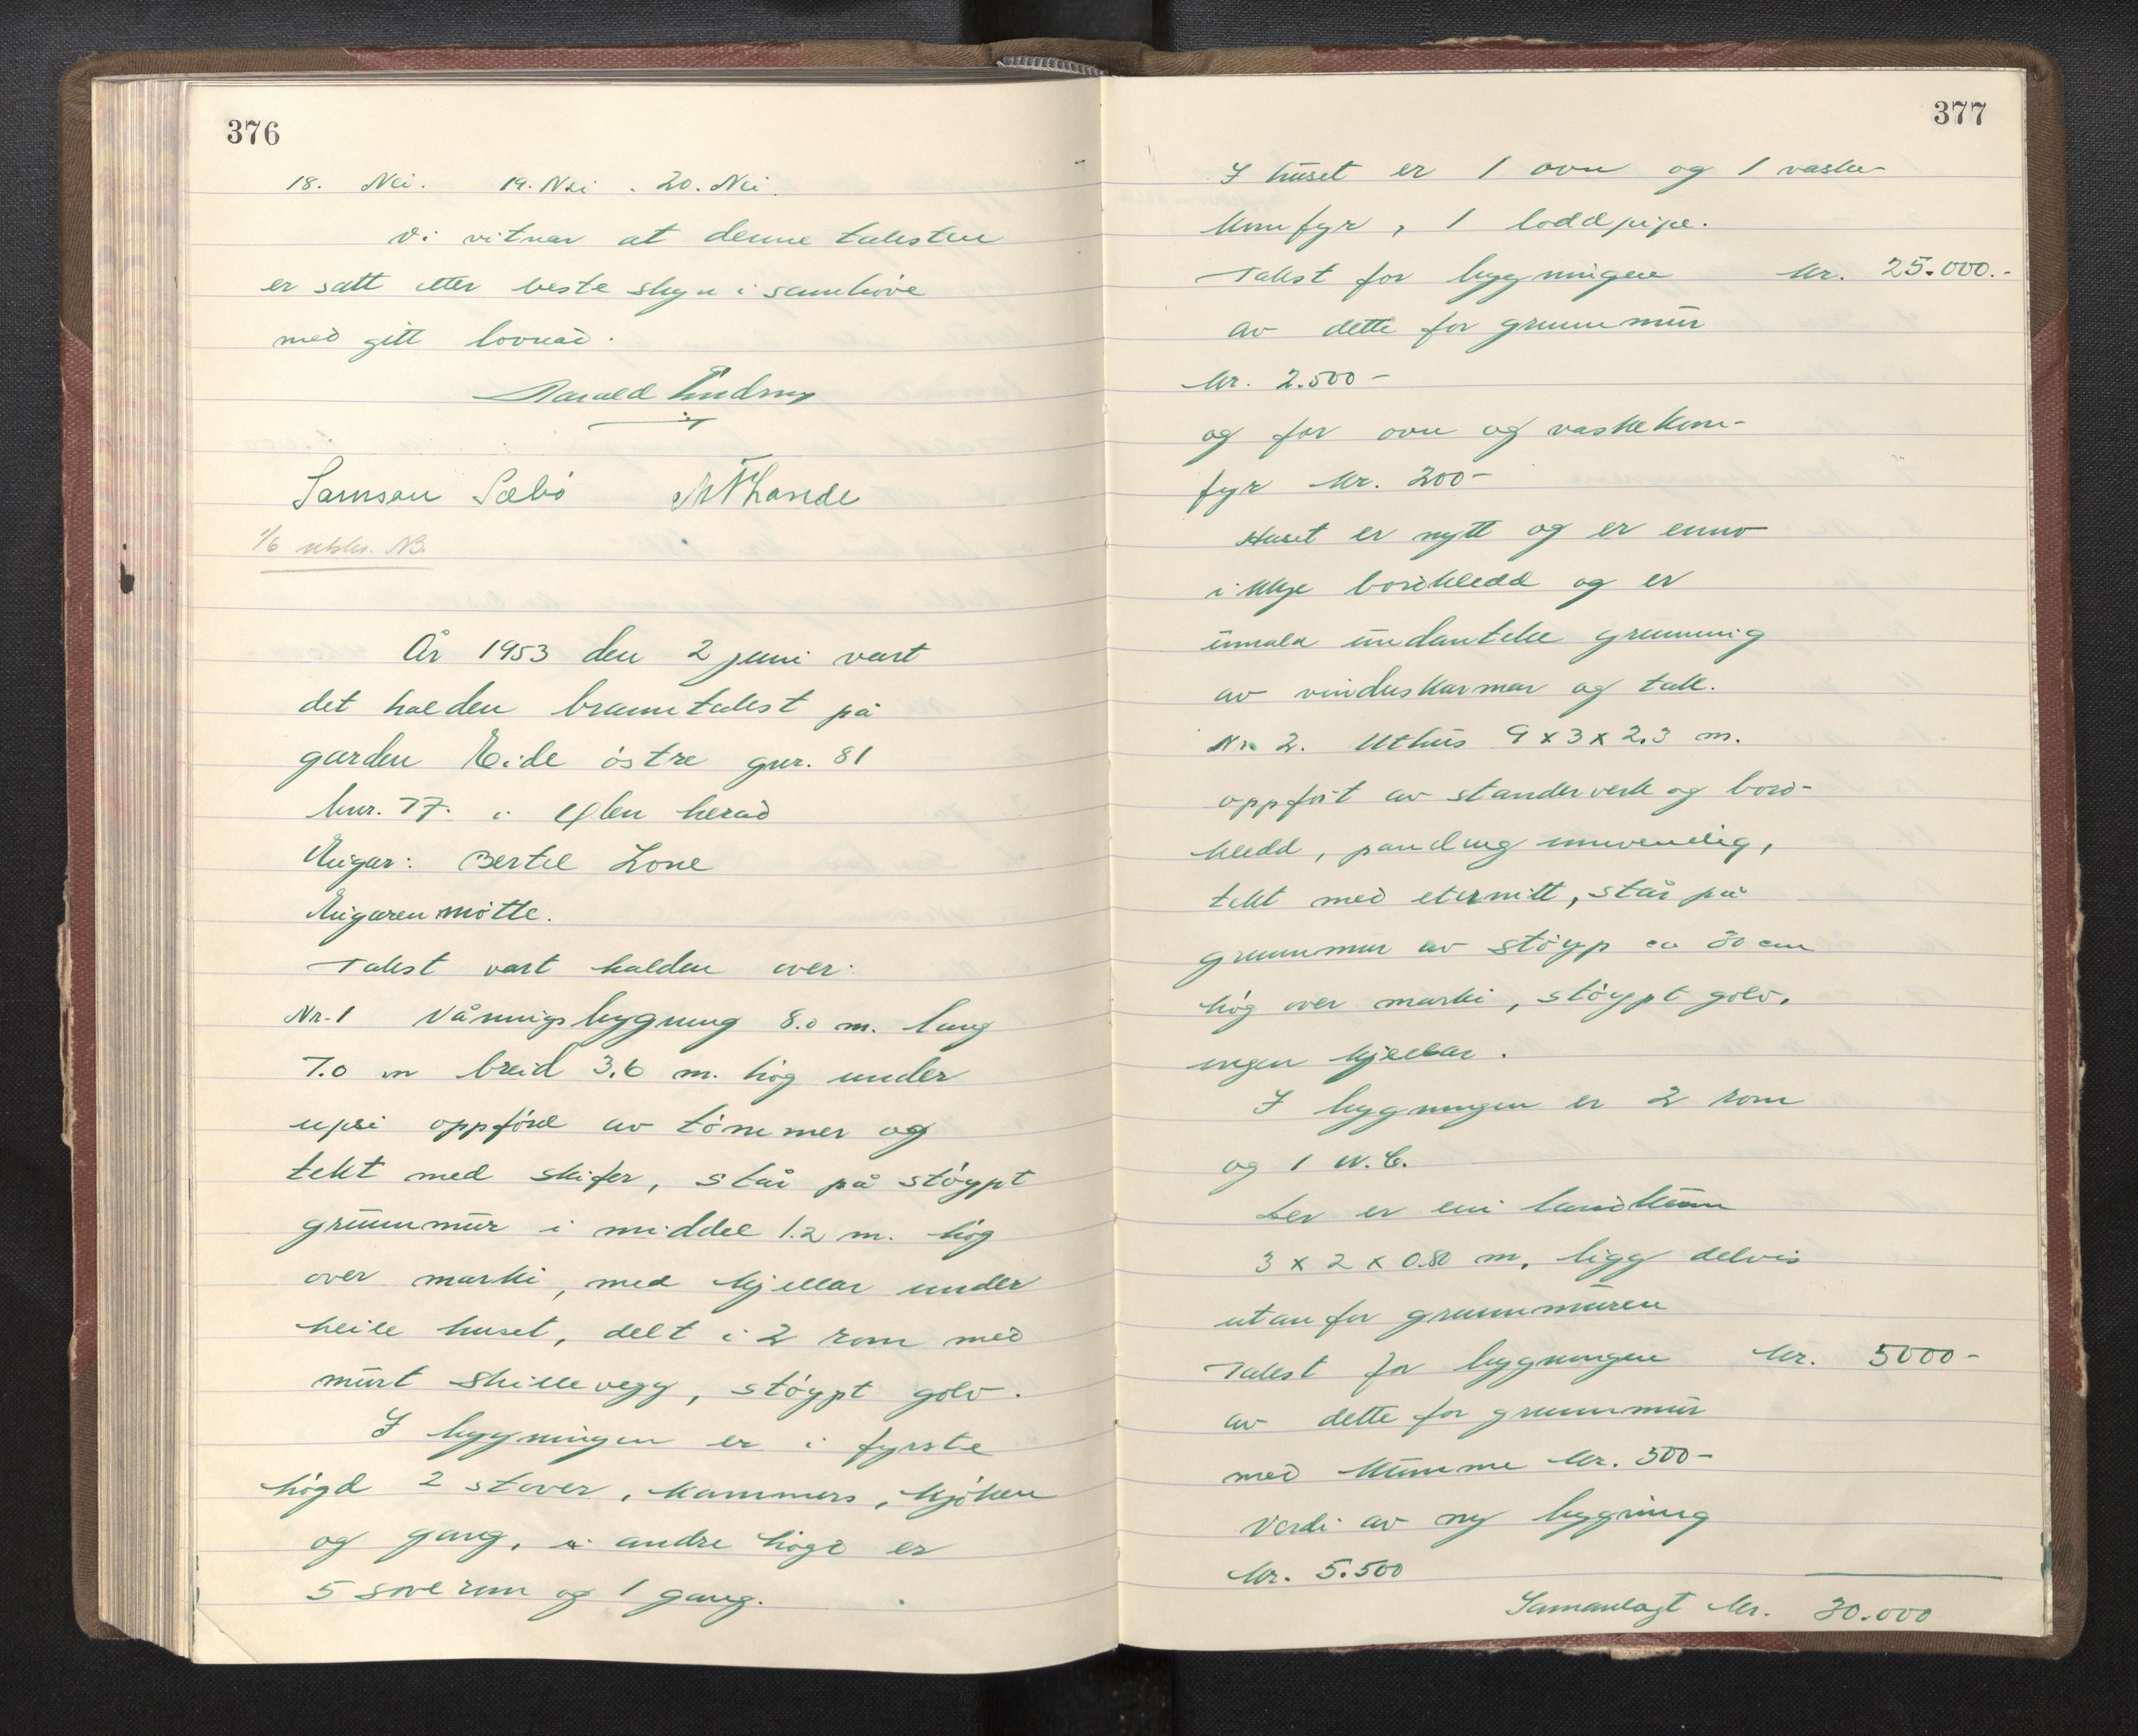 376
18. Nei. 19. Nei. 20. Nei.
Vi vitnar at denne taksten
er satt etter beste skyn i samhöve
med gitt lovnad.
Harald
Samson Sæbö
1/6 utskr. NB.
År 1953 den 2 juni vart
det halden branntakst på
garden Eide östre gnr. 81
bnr. 77. i Ølen herad
Eigar: Bertel Lone
Eigaren mötte.
Takst vart halden over:
Nr. 1 Våningsbygning 8.0 m. lang
7.0 m breid 3.6 m. hög under
upsi oppförd av tömmer og
tekt med skifer, står på stöypt
grunnmur i middel 1.2 m. hög
over marki, med kjellar under
heile huset, delt i 2 rom med
murt skillevegg, stöypt golv.
I bygningen er i fyrste
högd 2 stover, kammers, kjöken
og gang, i andre högd er
5 soverom og 1 gang.
377
I huset er 1 ovn og 1 vaske-
komfyr, 1 loddpipe.
Takst for bygningen kr. 25.000.-
av dette for grunnmur
kr. 2.500-
og for ovn og vaskekom-
fyr kr. 200-
Huset er nytt og er enno
ikkje bordkledd og er
umala undanteke grunning
av vinduskarmar og tak.
Nr. 2. Uthus 9 x 3 x 2.3 m.
oppfört av standerverk og bord-
kledd, paneling innvendig,
tekt med eternitt, står på
grunnmur av stöyp ca 30 cm
hög over marki, stöypt golv,
ingen kjellar.
I bygningen er 2 rom
og 1 W.C.
Der er ein landkum
3 x 2 x 0.80 m, ligg delvis
utanfor grunnmuren
Takst for bygningen kr. 5000-
av dette for grunnmur
med kumme kr. 500-
Verdi av ny bygning
kr. 5.500
Samanlagt kr. 30.000